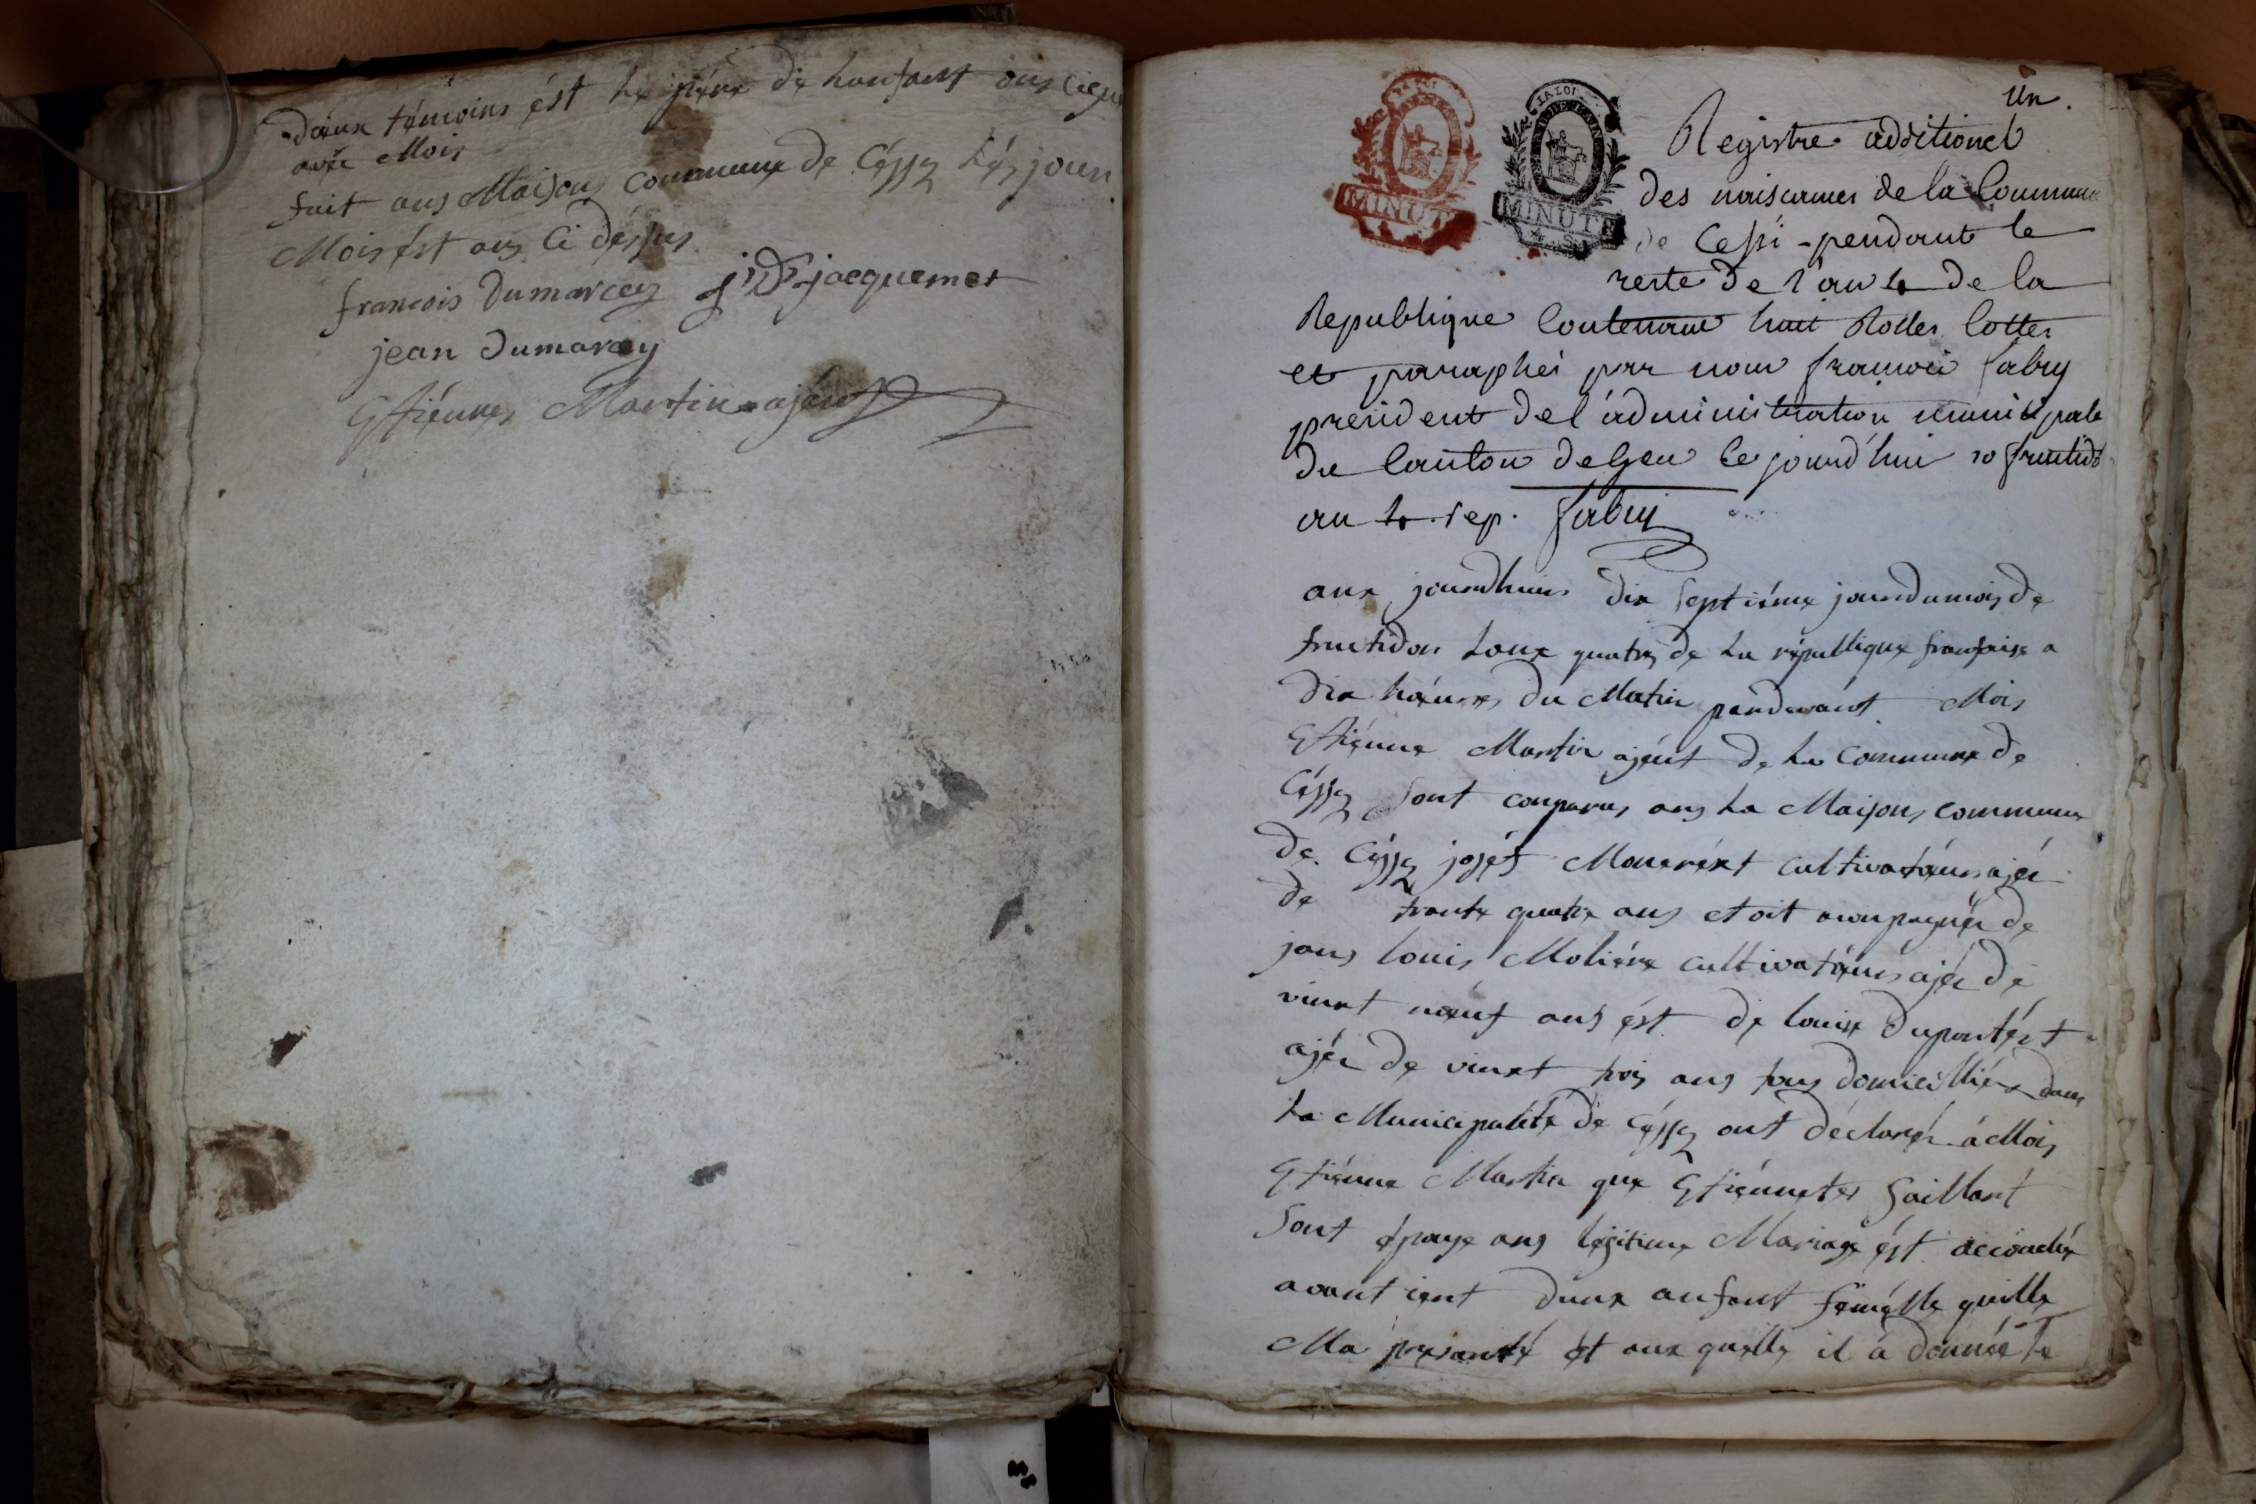 deux témoins ést le pére de lanfant ons signé
avéc Mois
fait ans Maisons commune de Céssÿ Lés jour
Mois ést ans Ci déssus
francois Dumarcey j D jacquemet
jean Dumarcey
Estiénne Martin ajént
un.
Registre additionel
des naissances de la Commune
de Cessi - pendant le
reste de l'an 4 de la
Republique Contenant huit Rolles Cottes
et paraphés par nous françois fabry
président de l'administration municipale
du Canton de Gex ce jourd'hui 10 fructid
an 4 rep. fabry
LA LOI
MINUTE
LA LOI
MINUTE
aux jourdhuis dix septiéme jour du mois de
fructidor Lanx quatre de La républiqux franfaise a
dix háeures du Matin pardevant Mois
Estiénne Martin ajént de La Commune de
Céssÿ sont comparus ans La Maisons commune
de Céssÿ joséf Monerést cultivatéurs ajéé
de trante quatre ans etoit acompagnéé de
jans louis Moliére cultivatéurs ajéé de
vinxt neuf ans ést de louise Dupontést
ajéé de vinxt trois ans tous domicilliés dans
La Municipalité de Céssÿ ont déclarér á Mois
Estiénne Martin que Estiénnetes Gaillart
Sont épouse ans légitime Mariage ést acouchée
avant ient dunx anfant fémélle quille
Ma présanté ét aux quelle il á donnéé le